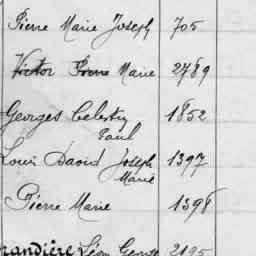 Pierre Marie Joseph 705
Victor Pierre Marie 2789
Georges Celestin 1852
Paul
Louis David Joseph 1397
Marie
Pierre Marie 1398
randière Léon George 2195